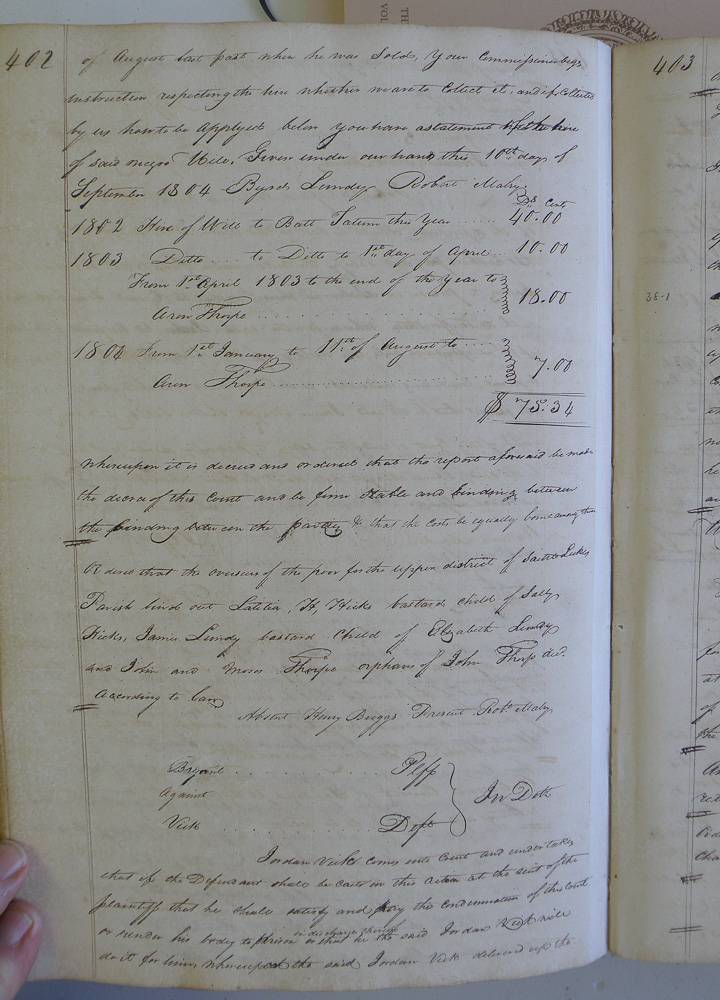 402
of August last past when he was Sold, Your Commissioners begs
instruction respecting the hire whether we are to Collect it, and if Collected
by us how to be Applyed below you have a statement of the hire
of said negro Will. Given under our hands this 10th day of
September 1804 Byrd Lundy Robert Maby
Ds Cents
1802 Hire of Will to Batt Tatum this Year ...... 40.00
1803 Ditto .... to Ditto to 1st day of April ... 10.00
From 1st April 1803 to the end of the Year to
Aron Thorpe ............ 18.00
1804 From 1st January to 11th of August to ....
Aron Thorpe ............ 7.00
$ 75.34
Whereupon it is decreed and ordered that the report aforesaid be made
the decree of this Court and be firm Stable and binding between
the binding between the parties & that the costs be equally borne among them
Ordered that the overseers of the poor for the upper district of Saint Lukes
Parish bind out Latitia, H, Hicks bastard child of Sally
Hicks, James Lundy bastard Child of Elizabeth Lundy
and John and Moses Thorpe orphans of John Thorp dec.
According to Law
Absent Henry Briggs Present Robt Maby
Bryant ............ Plff
Against
Vick ............ Deft
In Debt
Jordan Vick comes into Court and undertakes
that if the Defendant shall be cast in this action at the suit of the
plaintiff that he shall satisfy and pay the Condemnation of the Court
or render his body to prison in discharge thereof or that he the said Jordan Vick will
do it for him, whereupon the said Jordan Vick delivered up the
403
38-1